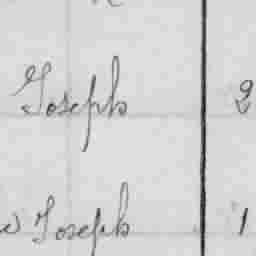 Joseph 2
Joseph 1